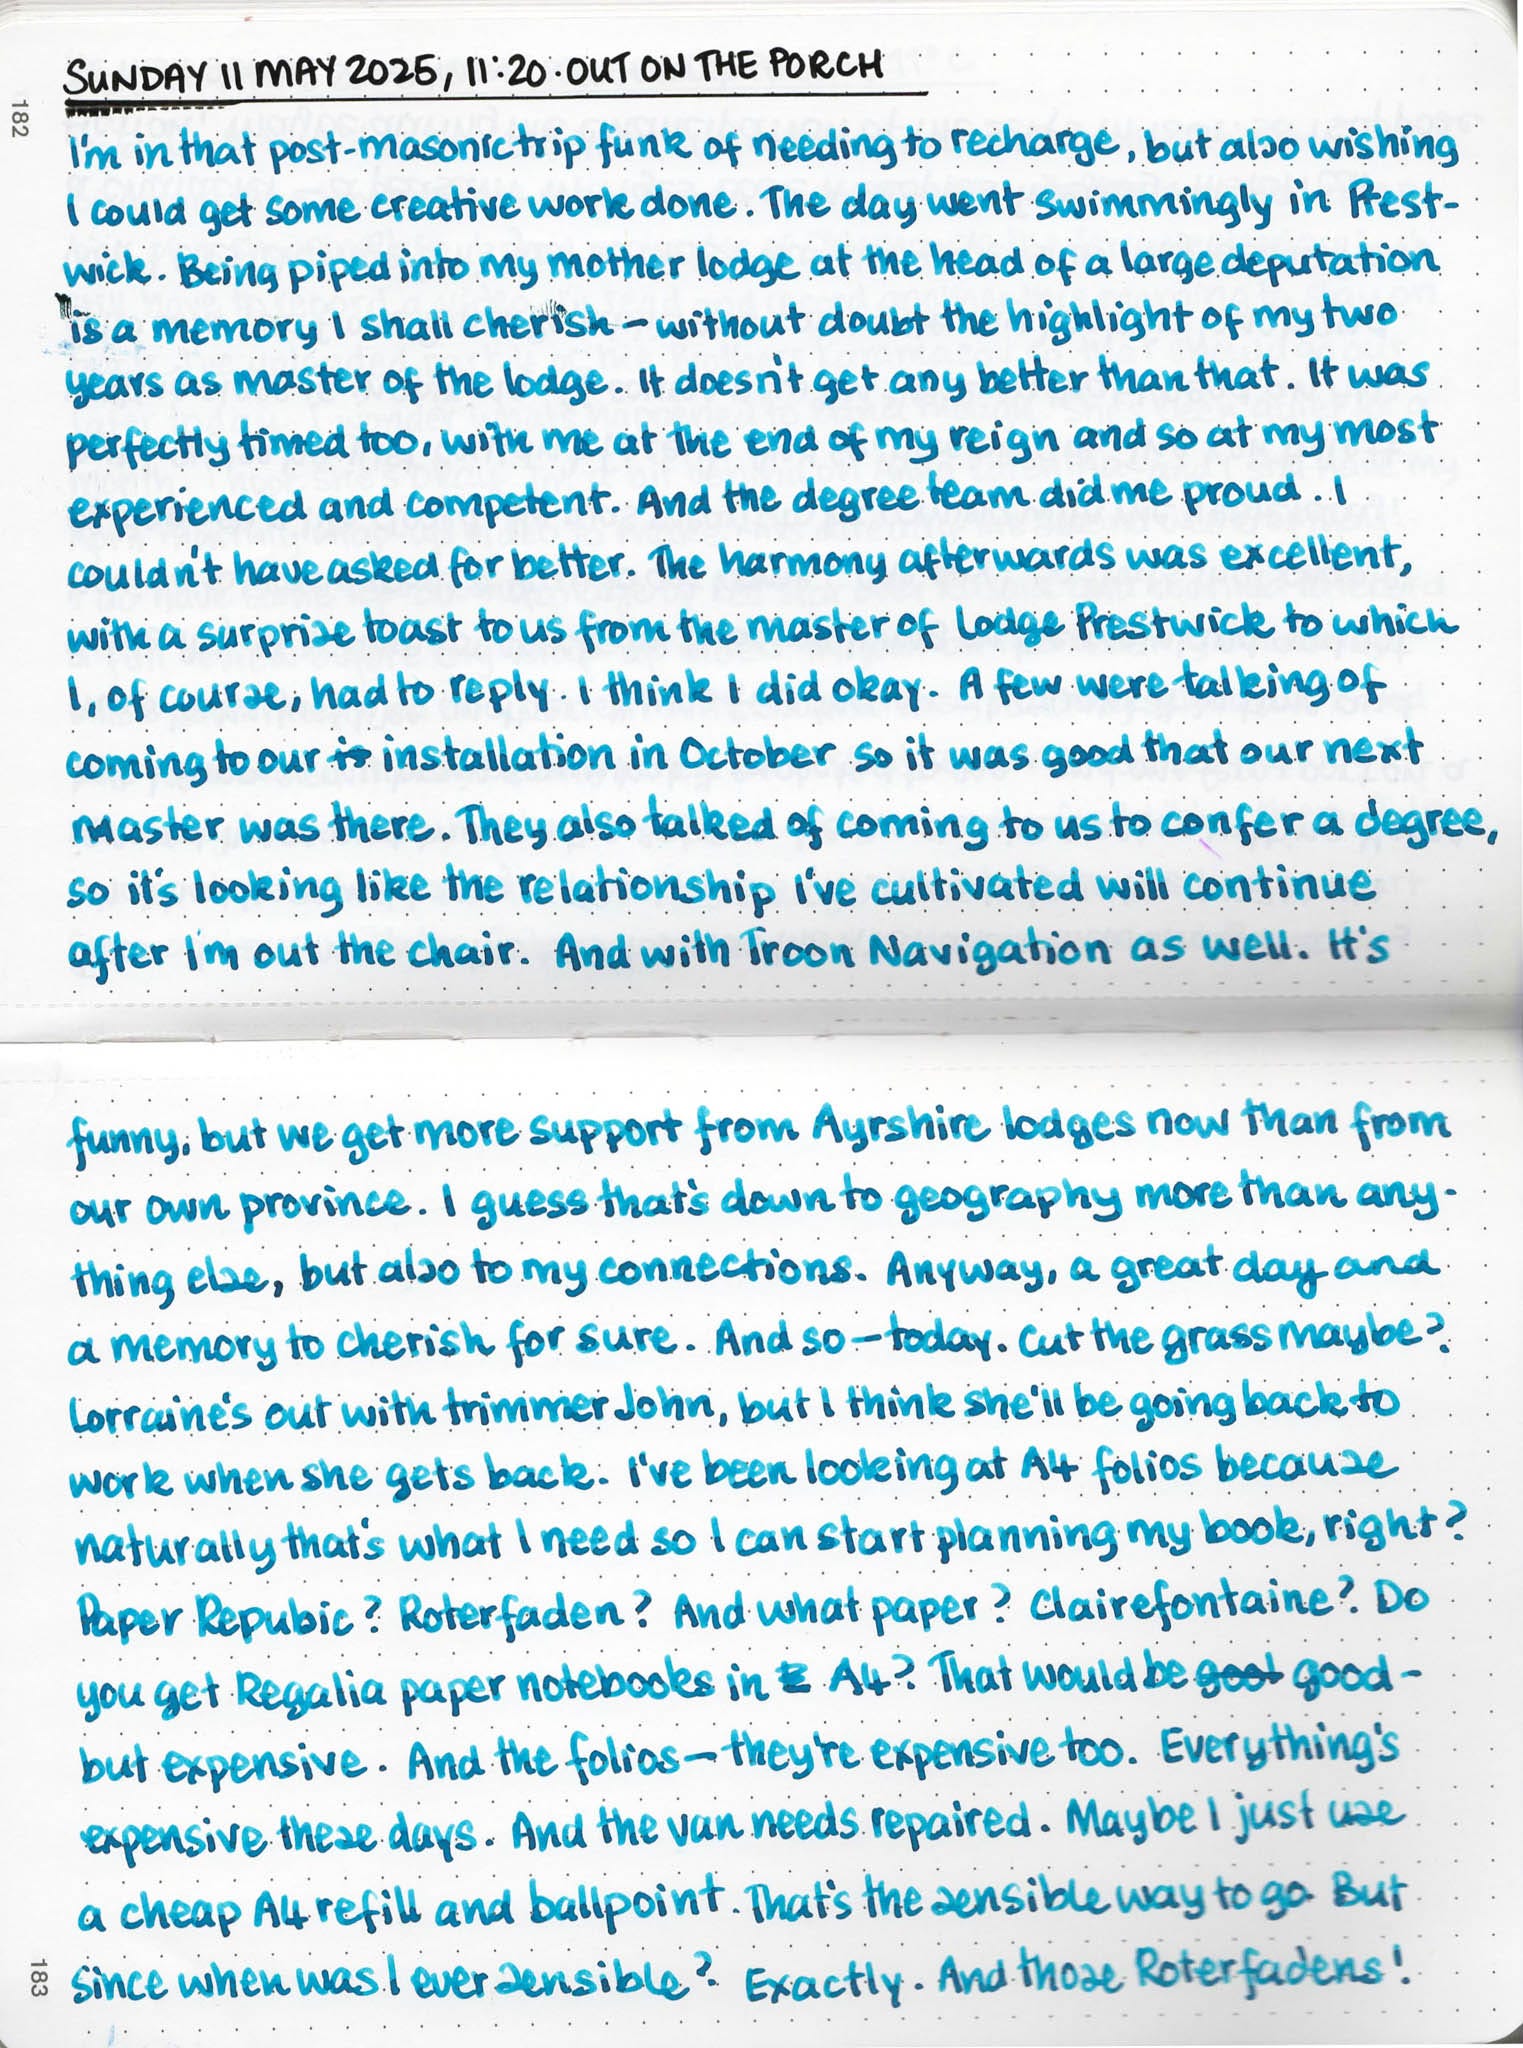 SUNDAY 11 MAY 2025, 11:20. OUT ON THE PORCH
182
I'm in that post-masonic trip funk of needing to recharge, but also wishing
I could get some creative work done. The day went swimmingly in Prest-
wick. Being piped into my mother lodge at the head of a large deputation
is a memory I shall cherish – without doubt the highlight of my two
years as master of the lodge. It doesn't get any better than that. It was
perfectly timed too, with me at the end of my reign and so at my most
experienced and competent. And the degree team did me proud. I
couldn't have asked for better. The harmony afterwards was excellent,
with a surprise toast to us from the master of Lodge Prestwick to which
I, of course, had to reply. I think I did okay. A few were talking of
coming to our is installation in October so it was good that our next
master was there. They also talked of coming to us to confer a degree,
so it's looking like the relationship I've cultivated will continue
after I'm out the chair. And with Troon Navigation as well. It's
funny, but we get more support from Ayrshire lodges now than from
our own province. I guess that's down to geography more than any-
thing else, but also to my connections. Anyway, a great day and
a memory to cherish for sure. And so – today. Cut the grass maybe?
Lorraine's out with trimmer John, but I think she'll be going back to
work when she gets back. I've been looking at A4 folios because
naturally that's what I need so I can start planning my book, right?
Paper Repubic? Roterfaden? And what paper? Clairefontaine? Do
you get Regalia paper notebooks in A4? That would be goot good –
but expensive. And the folios – they're expensive too. Everything's
expensive these days. And the van needs repaired. Maybe I just use
a cheap A4 refill and ballpoint. That's the sensible way to go. But
since when was I ever sensible? Exactly. And those Roterfadens!
183